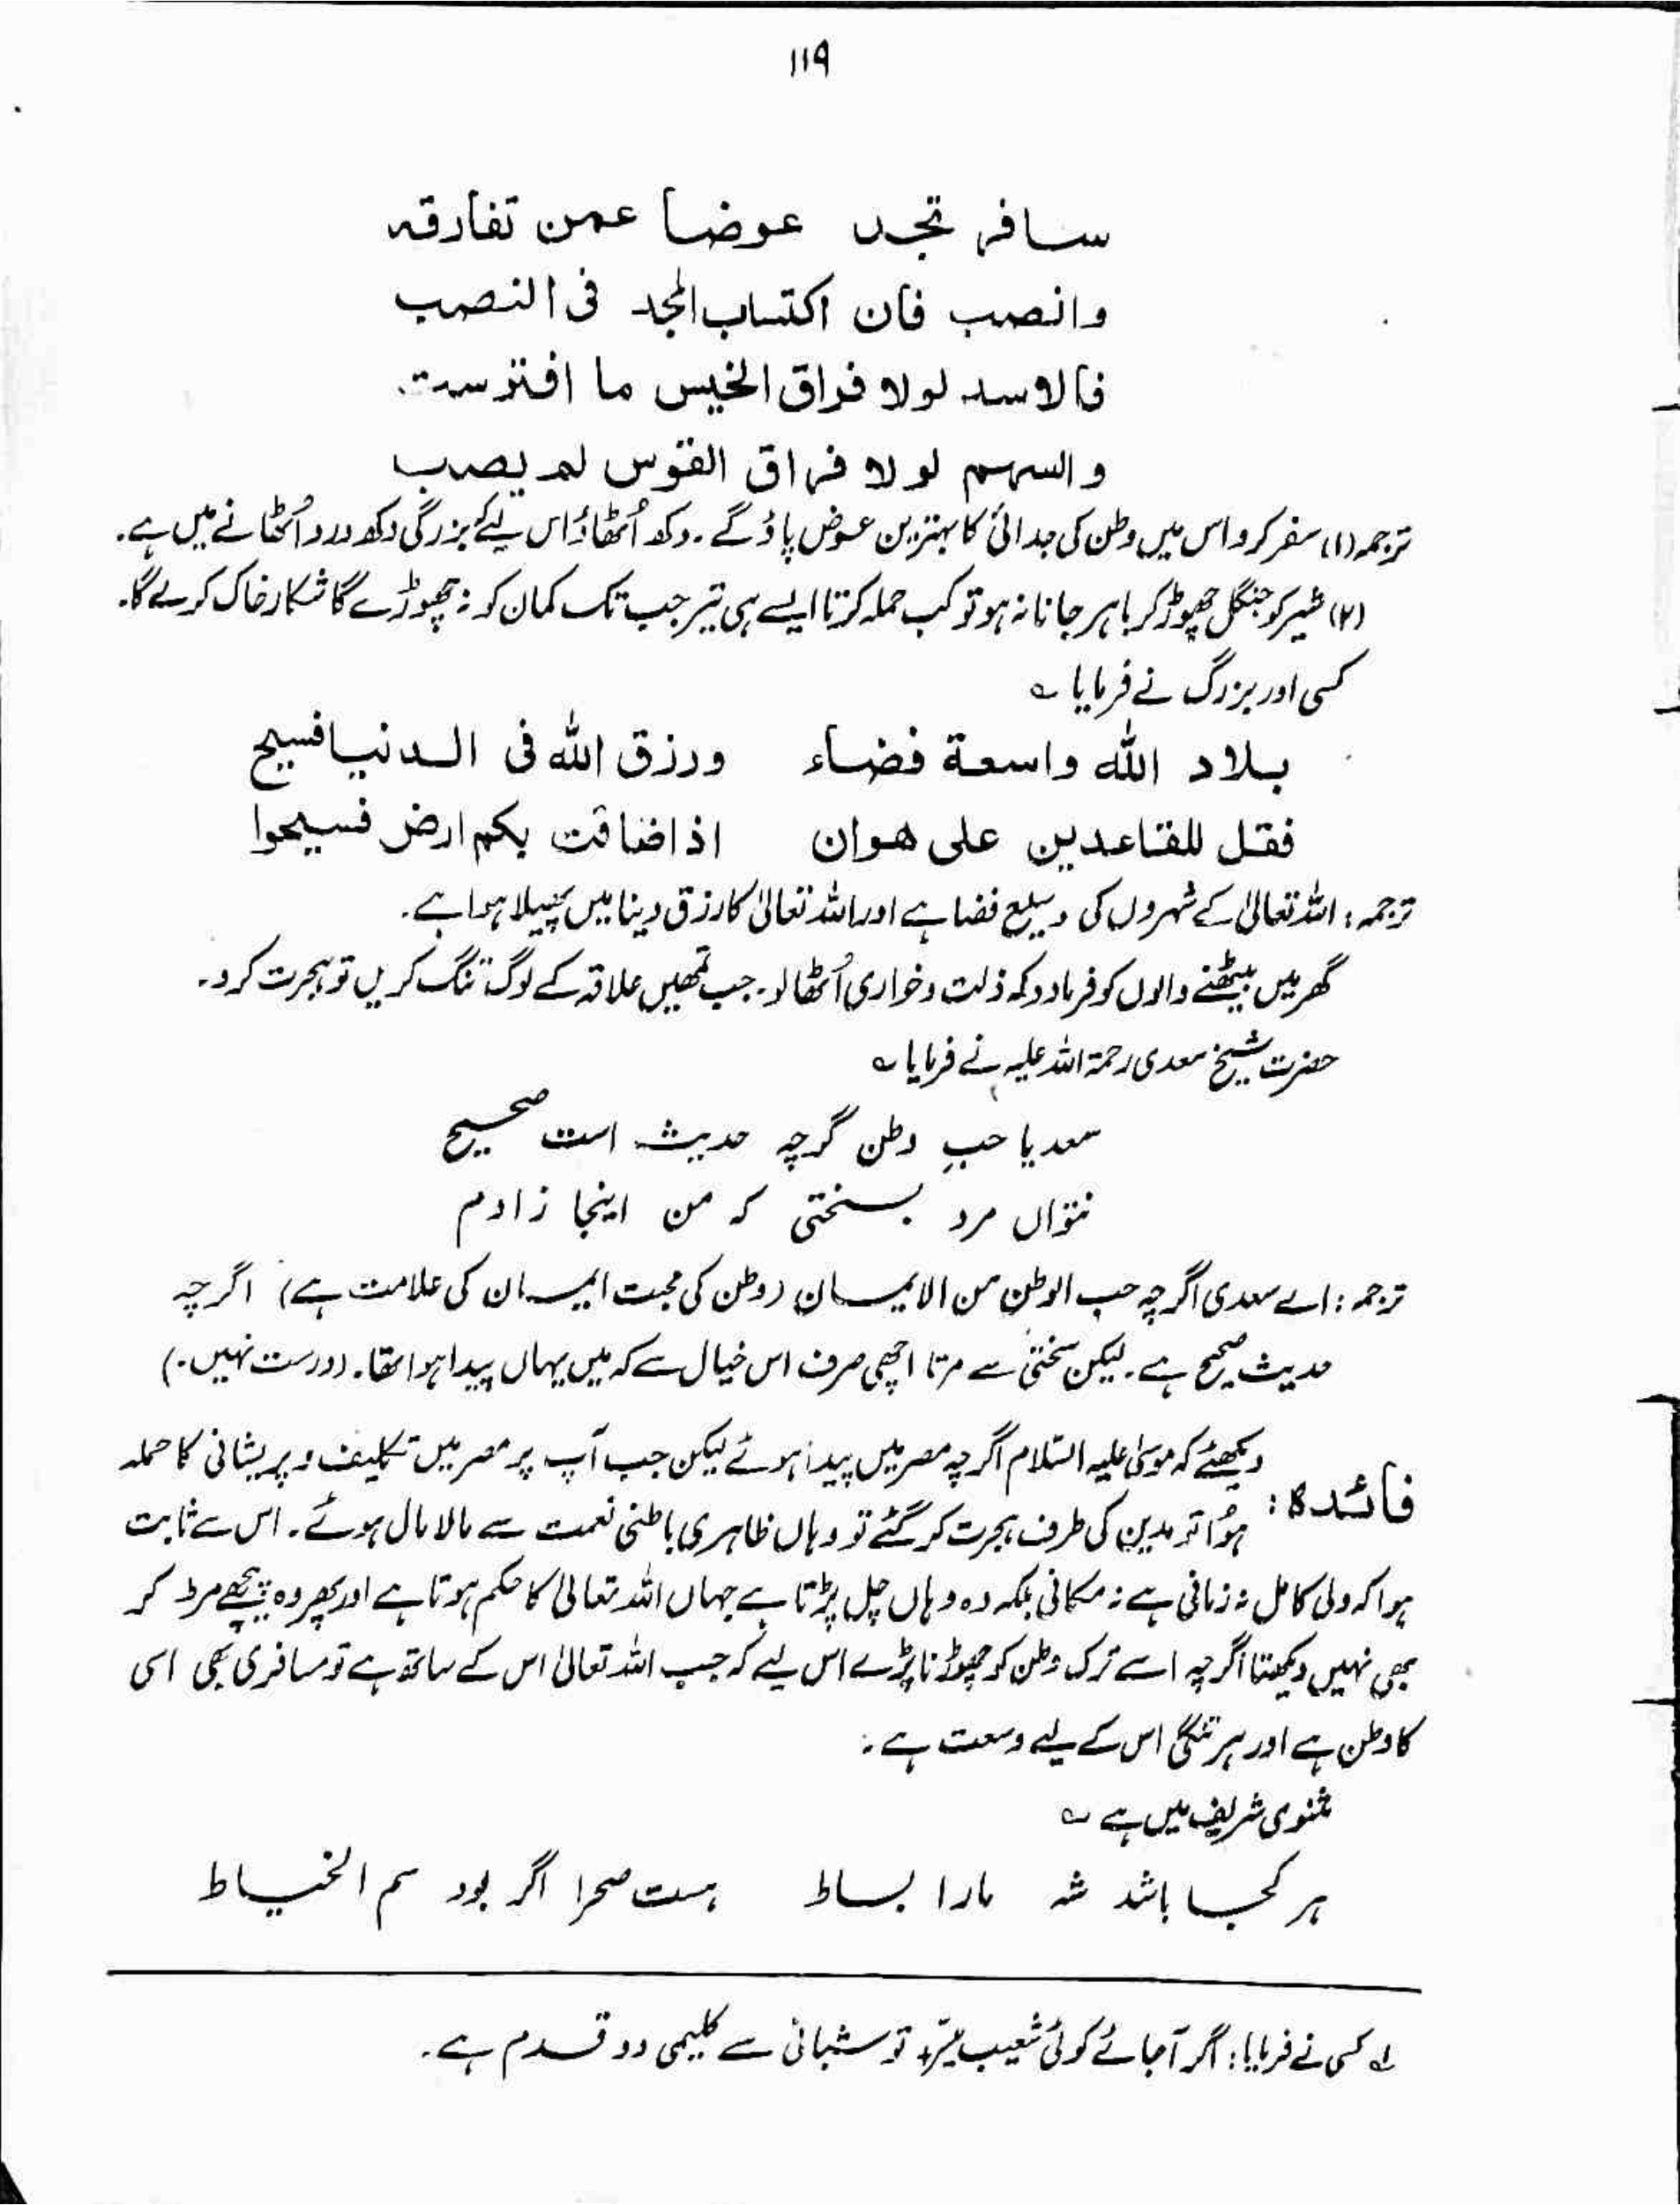 ۱۱۹
سافر تجد عوضا عمن تفارقہ
وانصب فان اکتساب المجد فی النصب
فالاسد لولا فراق الخیس ما افترست
والسہم لولا فراق القوس لم یصب
ترجمہ (۱) سفر کرو اس میں وطن کی جدائی کا بہترین عوض پاؤ گے۔ دکھ اُٹھاؤ اس لیے کہ بزرگی دکھ درد اُٹھانے میں ہے۔
(۲) شیر کو جنگل چھوڑ کر باہر جانا نہ ہو تو کب حملہ کرتا ایسے ہی تیر جب تک کمان کو نہ چھوڑے گا شکار خاک کرے گا۔
کسی اور بزرگ نے فرمایا ؎
بلاد اللہ واسعۃ فضاء ورزق اللہ فی الدنیا فسیح
فقل للقاعدین علی ھوان اذا ضاقت بکم ارض فسیحوا
ترجمہ: اللہ تعالیٰ کے شہروں کی وسیع فضا ہے اور اللہ تعالیٰ کا رزق دینا میں پھیلا ہوا ہے۔
گھر میں بیٹھنے والوں کو فرما دو کہ ذلت و خواری اُٹھا لو۔ جب تمھیں علاقہ کے لوگ تنگ کریں تو ہجرت کرو۔
حضرت شیخ سعدی رحمۃ اللہ علیہ نے فرمایا ؎
سعدیا حبِ وطن گرچہ حدیث است صحیح
نتواں مرد بسختی کہ من اینجا زادم
ترجمہ: اے سعدی اگرچہ حب الوطن من الایمان (وطن کی محبت ایمان کی علامت ہے) اگرچہ
حدیث صحیح ہے۔ لیکن سختی سے مرتا اچھی صرف اس خیال سے کہ میں یہاں پیدا ہوا تھا۔ (درست نہیں۔)
فائدہ: دیکھئے کہ موسیٰ علیہ السّلام اگرچہ مصر میں پیدا ہوئے لیکن جب آپ پر مصر میں تکلیف و پریشانی کا حملہ
ہُوا تو مدین کی طرف ہجرت کر گئے تو وہاں ظاہری باطنی نعمت سے مالا مال ہوئے۔ اس سے ثابت
ہوا کہ ولی کامل نہ زمانی ہے نہ مکانی بلکہ وہ وہاں چل پڑتا ہے جہاں اللہ تعالیٰ کا حکم ہوتا ہے اور پھر وہ پیچھے مڑ کر
بھی نہیں دیکھتا اگرچہ اسے ترک وطن کو چھوڑنا پڑے اس لیے کہ جب اللہ تعالیٰ اس کے ساتھ ہے تو مسافری بھی اسی
کا وطن ہے اور ہر تنگی اس کے لیے وسعت ہے :
مثنوی شریف میں ہے ؎
ہر کجا باشد شہ مارا بساط ہست صحرا اگر بود سم الخیاط
لہ کسی نے فرمایا: اگر آجائے کوئی شعیب میّسر تو شبانی سے کلیمی دو قدم ہے۔